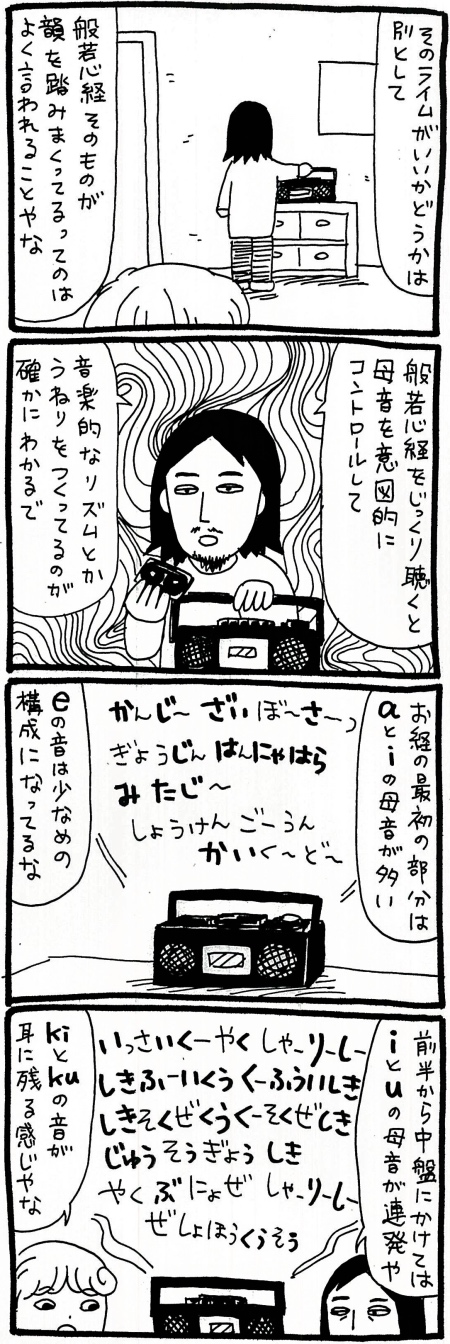 そのライムがいいかどうかは
別として
般若心経そのものが
韻を踏みまくってるってのは
よく言われることやな
般若心経をじっくり聴くと
母音を意図的に
コントロールして
音楽的なリズムとか
うねりをつくってるのが
確かにわかるで
お経の最初の部分は
aとiの母音が多い
かんじ〜 ざいぼ〜さ〜っ
ぎょうじん はんにゃはら
みたじ〜
しょうけん ごーうん
かいく〜ど〜
eの音は少なめの
構成になってるな
前半から中盤にかけては
iとuの母音が連発や
いっさいくーやく しゃーりーしー
しきふーいくうくーふういしき
しきそくぜくうくーそくぜしき
じゅうそうぎょうしき
やくぶにょぜ しゃーりーしー
ぜしょほうくうそう
kiとkuの音が
耳に残る感じやな